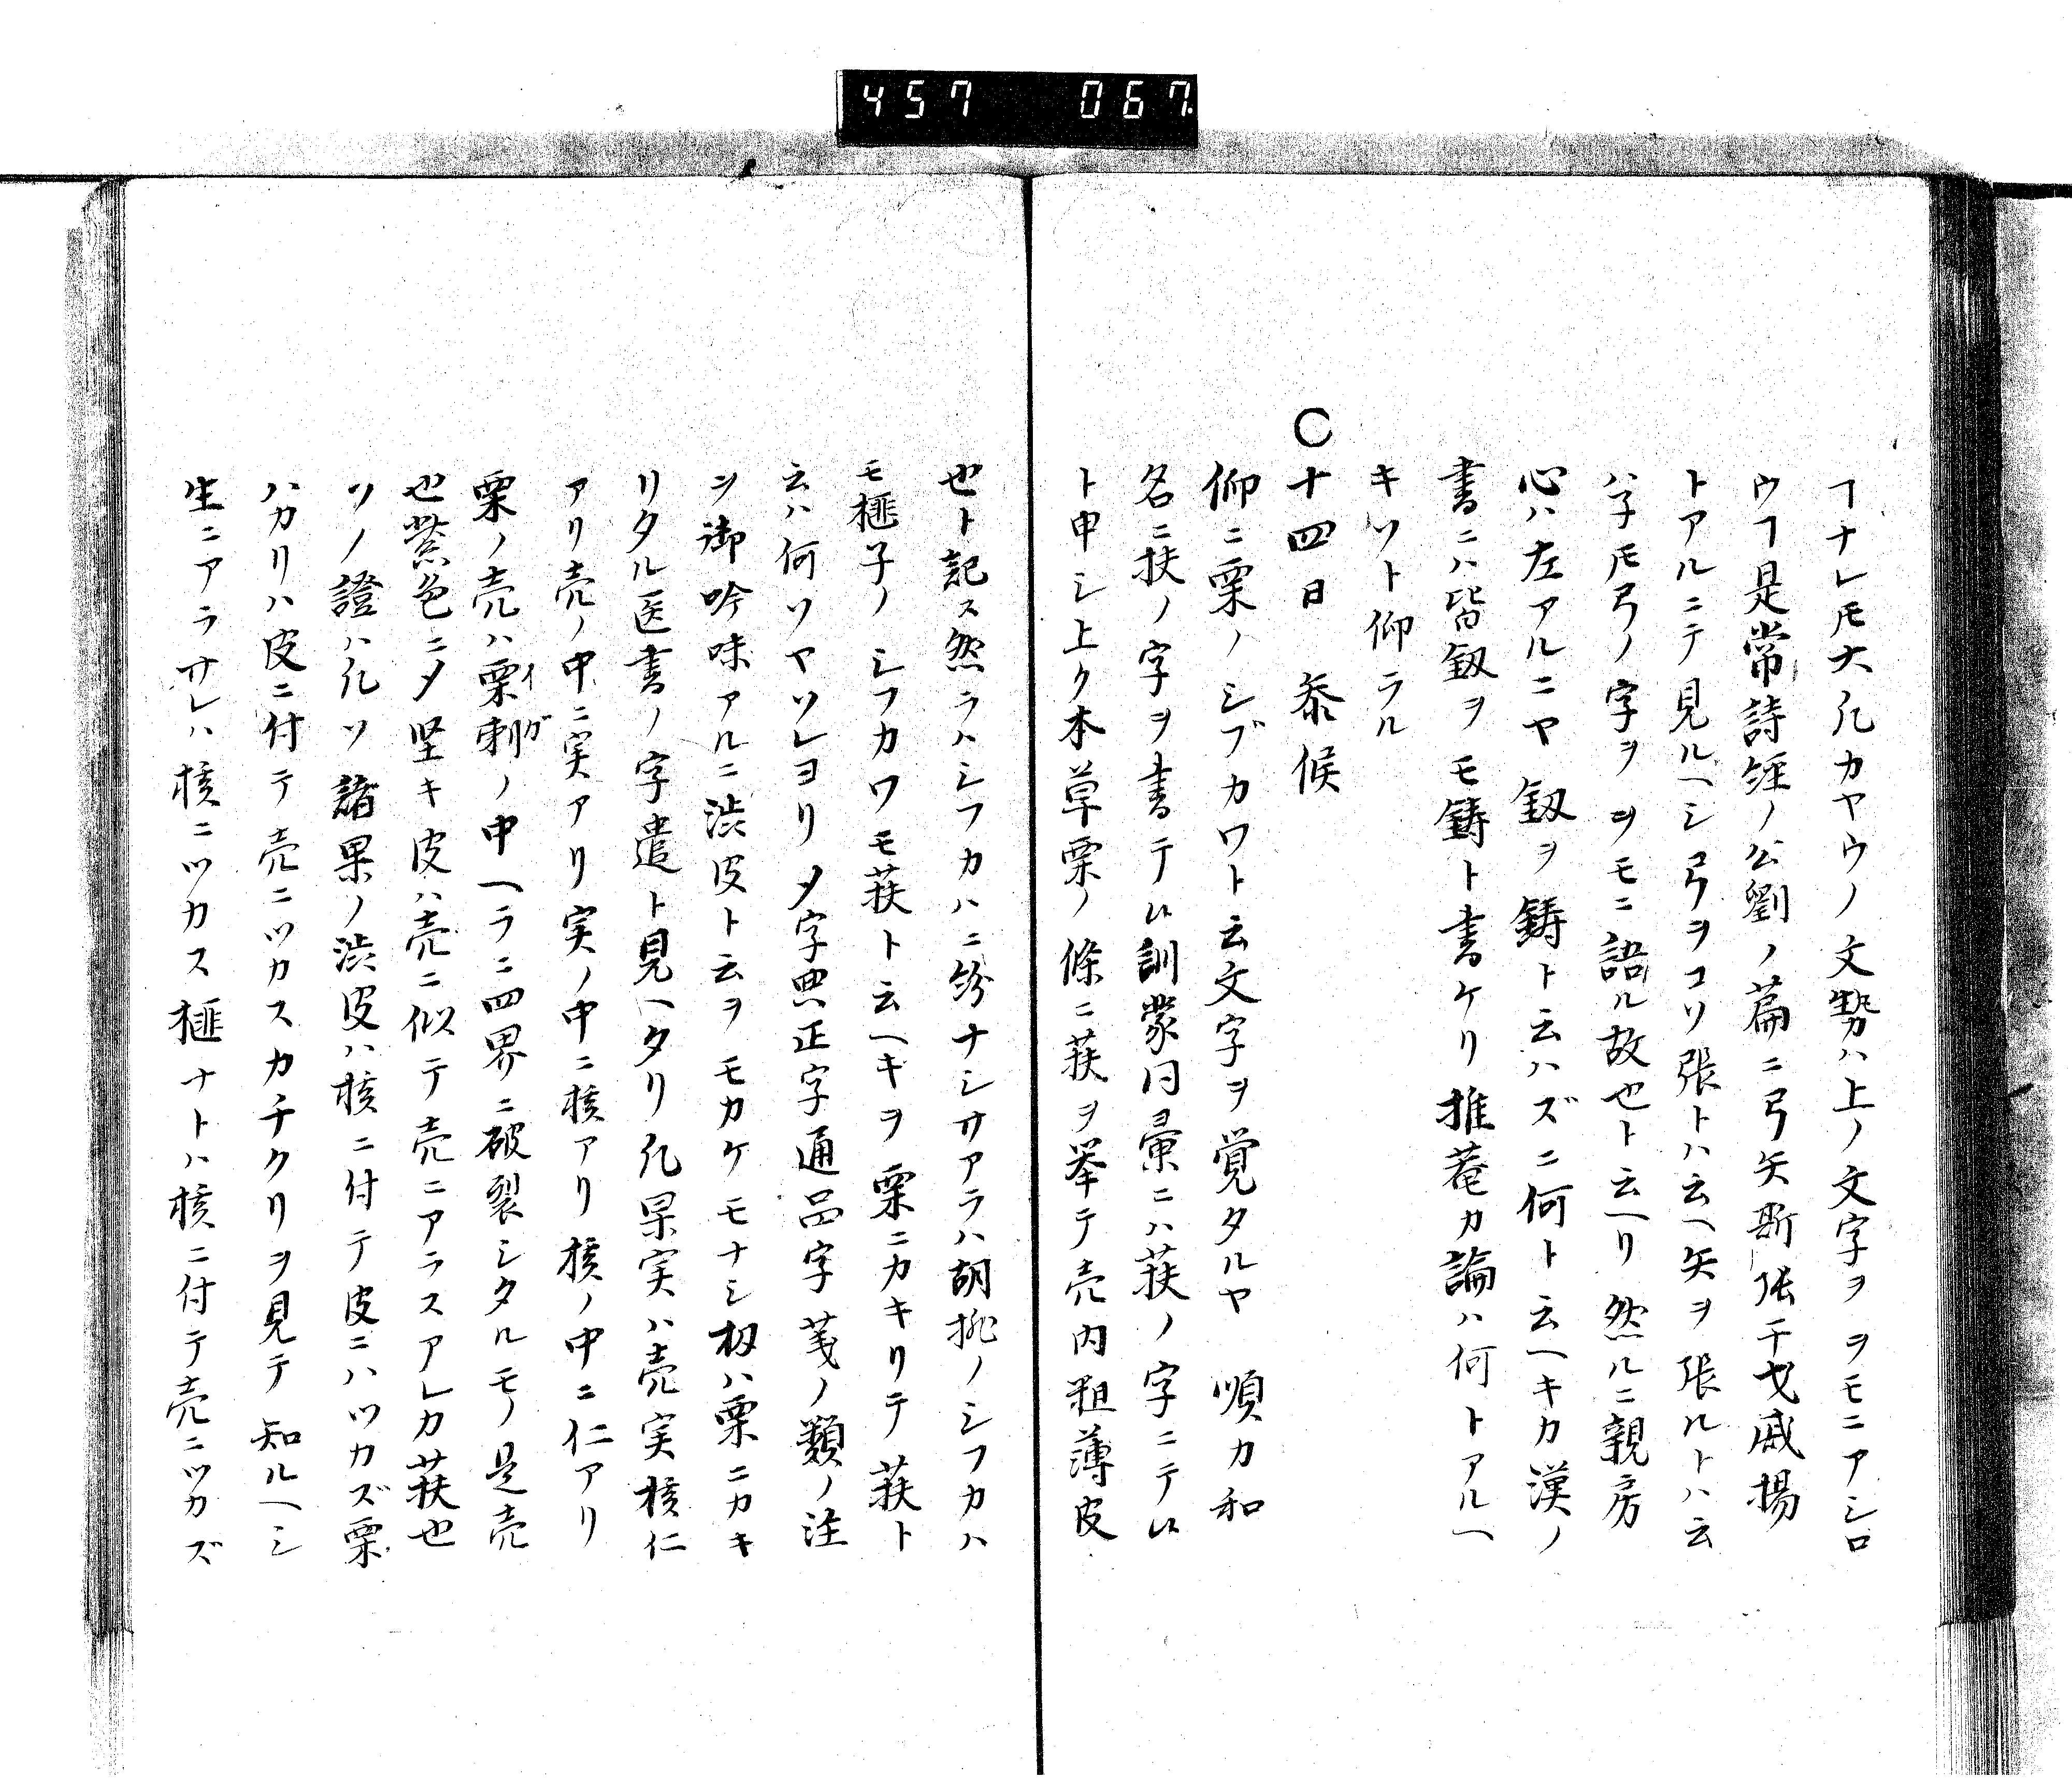 457 067
ヿナレ𪜈大凡カヤウノ文勢ハ上ノ文字ヲヲモニアシロ
ウヿ是常詩経ノ公劉ノ篇ニ弓矢斯張干戈戚揚
トアルニテ見ルヘシ弓ヲコソ張トハ云ヘ矢ヲ張ルトハ云
ハ子𪜈弓ノ字ヲヲモニ語ル故也ト云ヘリ然ルニ親房
心ハ左アルニヤ釼ヲ鋳ト云ハズニ何ト云ヘキカ漢ノ
書ニハ皆釼ヲモ鋳ト書ケリ推菴カ論ハ何トアルヘ
キソト仰ラル
〇十四日 参候
仰ニ栗ノシブカワト云文字ヲ覚タルヤ 順カ和
名ニ扶ノ字ヲ書テ㕝訓蒙図彙ニハ荴ノ字ニテ㕝
ト申シ上ク本草栗ノ條ニ荴ヲ挙テ売内粗薄皮
也ト記ス然ラハシフカハニ紛ナシサアラハ胡桃ノシフカハ
モ榧子ノシフカワモ荴ト云ヘキヲ栗ニカキリテ荴ト
云ハ何ソヤソレヨリ〆字典正字通品字䇳ノ類ノ注
ヲ御吟味アルニ渋皮ト云ヲモカケモナシ扨ハ栗ニカキ
リタル医書ノ字遣ト見ヘタリ凡果実ハ売実核仁
アリ売ノ中ニ実アリ実ノ中ニ核アリ核ノ中ニ仁アリ
栗ノ売ハ栗刺イガノ中ヘラニ四界ニ破裂シタルモノ是売
也紫色ニ〆堅キ皮ハ売ニ似テ売ニアラスアレカ荴也
ソノ證ハ凡ソ諸果ノ渋皮ハ核ニ付テ皮ニハツカズ栗
ハカリハ皮ニ付テ売ニツカスカチクリヲ見テ知ルヘシ
生ニアラサレハ核ニツカス榧ナトハ核ニ付テ売ニツカズ